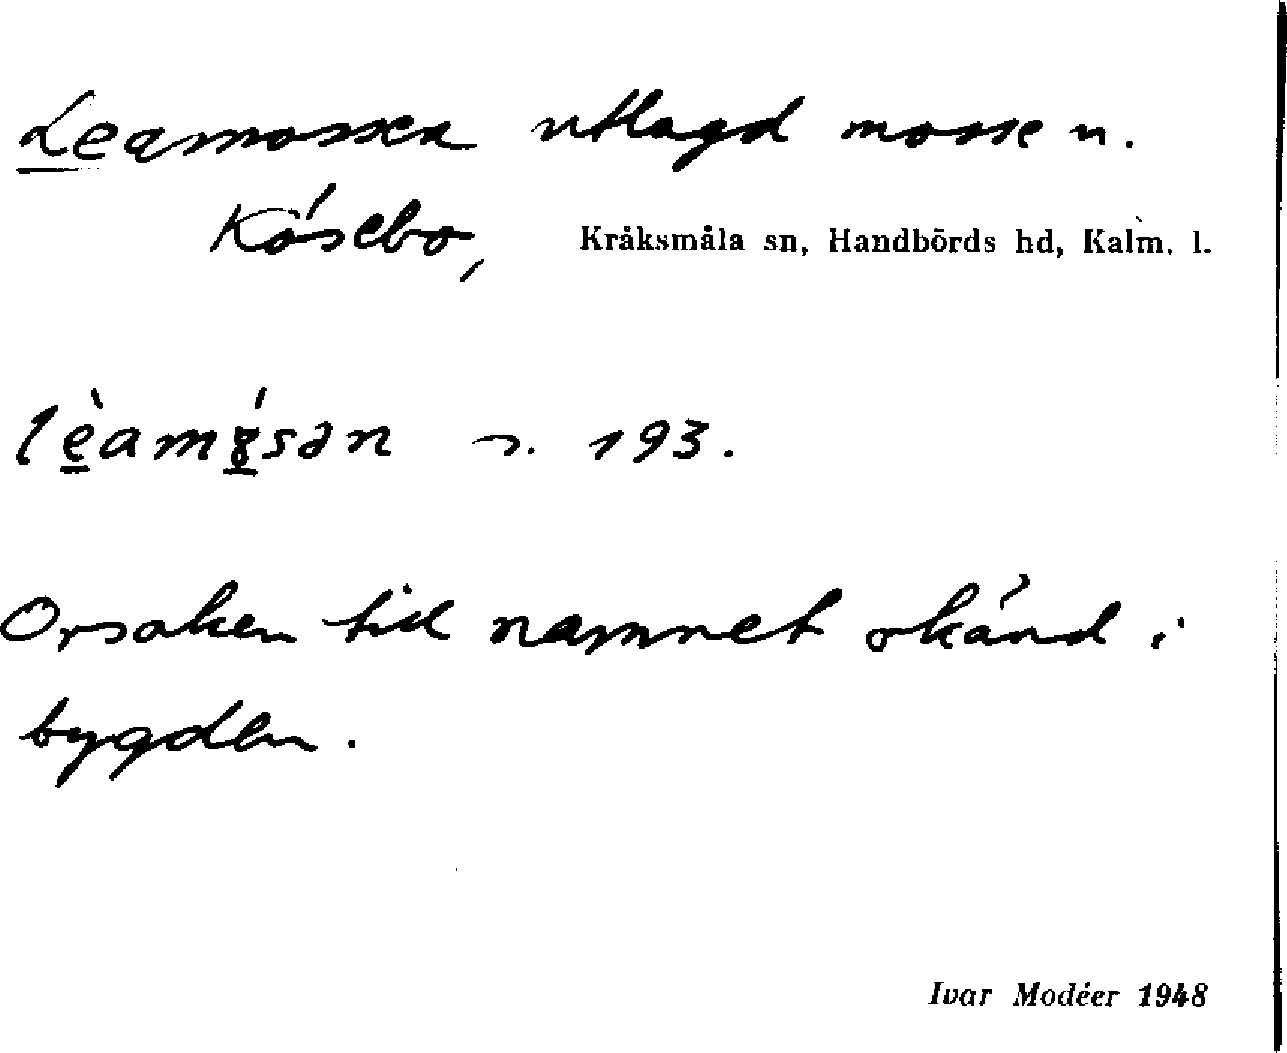 Leamossen utlagd mosse u.
Kåsebo, Kråksmåla sn, Handbörds hd, Kalm. l.
193.
Orsaken till namnet okänd i
bygden.
Ivar Modéer 1948